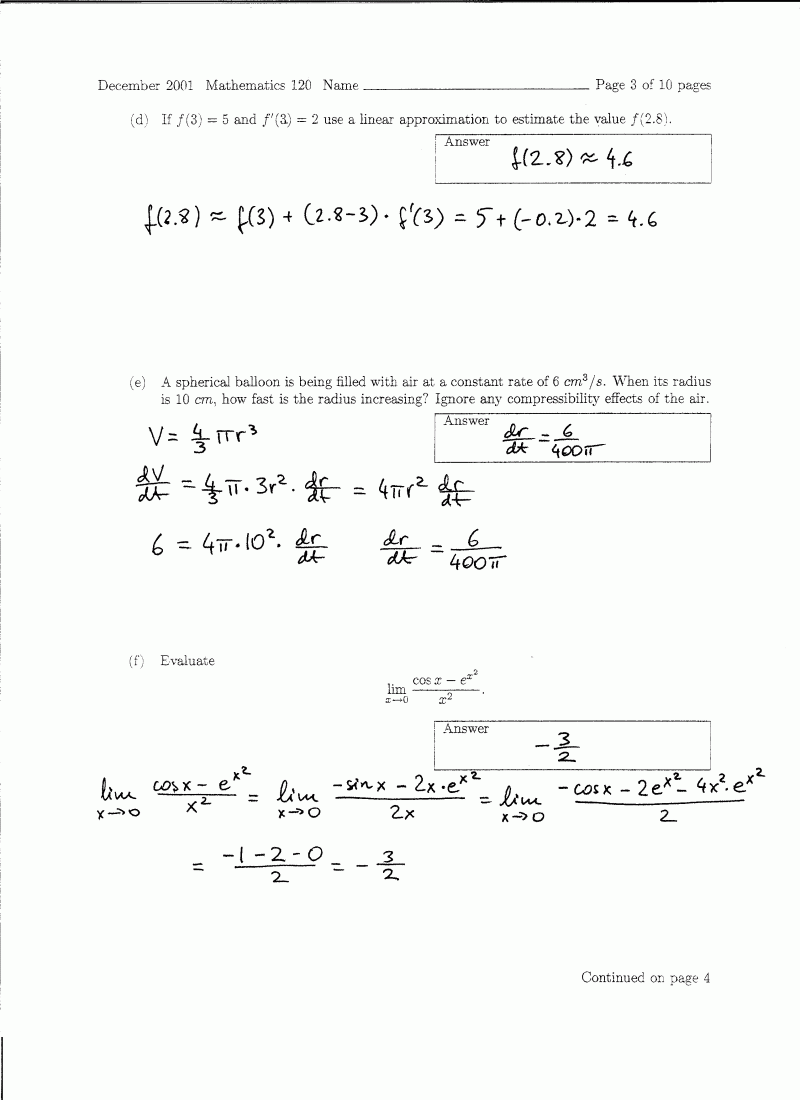 December 2001 Mathematics 120 Name ____________ Page 3 of 10 pages
(d) If f(3) = 5 and f′(3) = 2 use a linear approximation to estimate the value f(2.8).
Answer
f(2.8) ≈ 4.6
f(2.8) ≈ f(3) + (2.8-3) · f'(3) = 5 + (-0.2)·2 = 4.6
(e) A spherical balloon is being filled with air at a constant rate of 6 cm³/s. When its radius
is 10 cm, how fast is the radius increasing? Ignore any compressibility effects of the air.
Answer
dr/dt = 6/400π
V = 4/3 πr³
dV/dt = 4/3 π · 3r² · dr/dt = 4πr² dr/dt
6 = 4π·10² · dr/dt dr/dt = 6/400π
(f) Evaluate
lim x→0 (cos x − e^(x²))/x².
Answer
-3/2
lim x→0 (cos x - e^(x²))/x² = lim x→0 (-sin x - 2x·e^(x²))/2x = lim x→0 (-cos x - 2e^(x²) - 4x²·e^(x²))/2
= (-1-2-0)/2 = -3/2
Continued on page 4